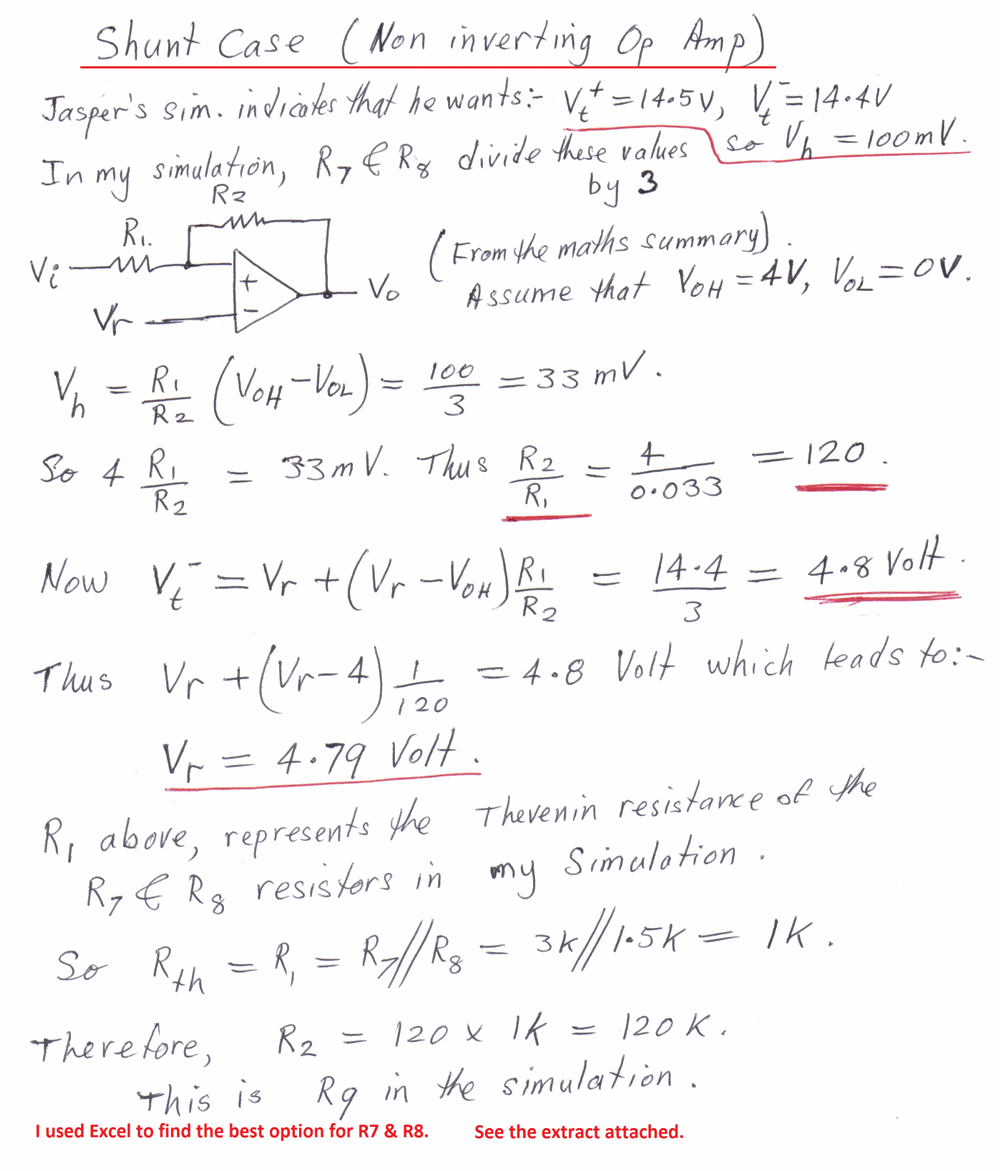 Shunt Case (Non inverting Op Amp)
Jasper's sim. indicates that he wants:- Vt+ = 14.5V, Vt- = 14.4V
so Vh = 100mV.
In my simulation, R7 & R8 divide these values
by 3
R2
R1.
Vi
+
-
Vo
Vr
(From the maths summary).
Assume that VOH = 4V, VOL = 0V.
Vh = R1/R2 (VOH - VOL) = 100/3 = 33 mV.
So 4 R1/R2 = 33mV. Thus R2/R1 = 4/0.033 = 120.
Now Vt- = Vr + (Vr - VOH) R1/R2 = 14.4/3 = 4.8 Volt.
Thus Vr + (Vr - 4) 1/120 = 4.8 Volt which leads to:-
Vr = 4.79 Volt.
R1 above, represents the Thevenin resistance of the
R7 & R8 resistors in my Simulation.
So Rth = R1 = R7//R8 = 3k//1.5k = 1k.
Therefore, R2 = 120 x 1k = 120K.
This is R9 in the simulation.
I used Excel to find the best option for R7 & R8. See the extract attached.